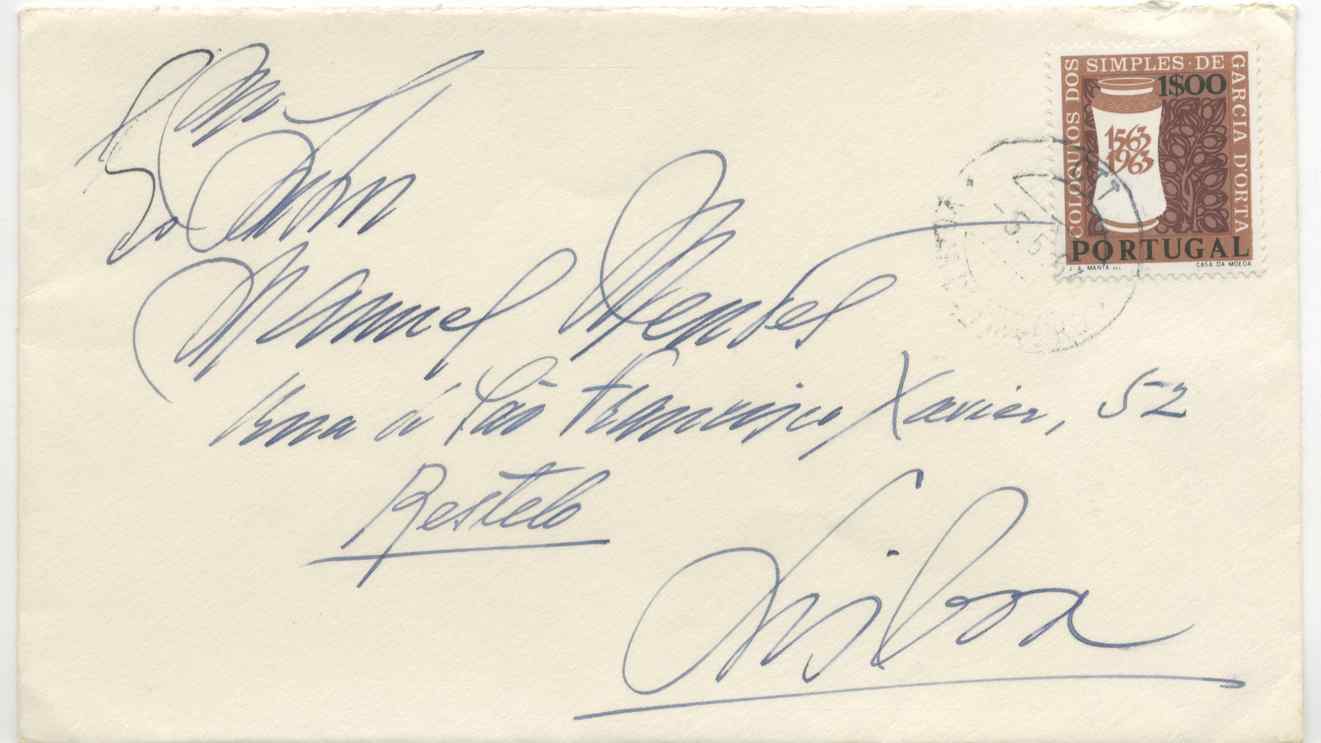 Exmo Senhor
Manuel Mendes
Rua de São Francisco Xavier, 52
Restelo
Lisboa
COLOQUIOS DOS SIMPLES · DE GARCIA D'ORTA
1$00
1563
1963
PORTUGAL
J. A. MANTA
CASA DA MOEDA